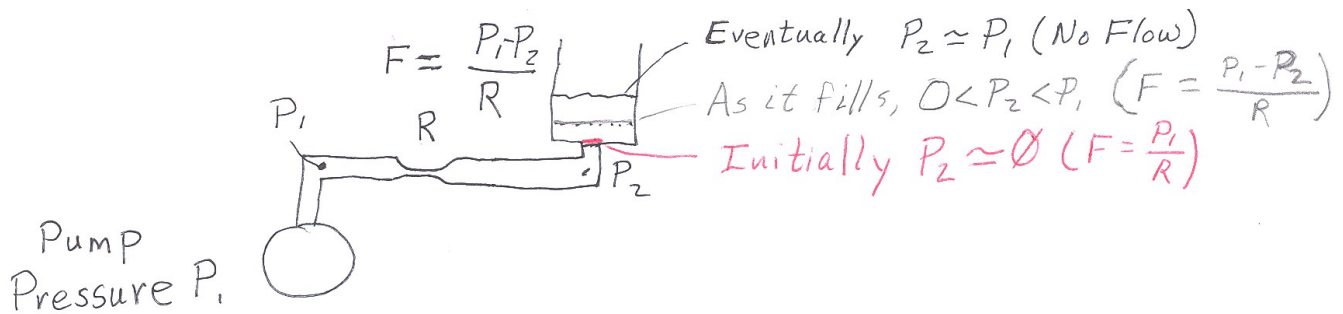 F = P₁-P₂ / R
Eventually P₂ ≃ P₁ (No Flow)
As it fills, 0<P₂<P₁ (F = P₁-P₂ / R)
Initially P₂ ≃ Ø (F = P₁ / R)
P₁
R
P₂
Pump
Pressure P₁